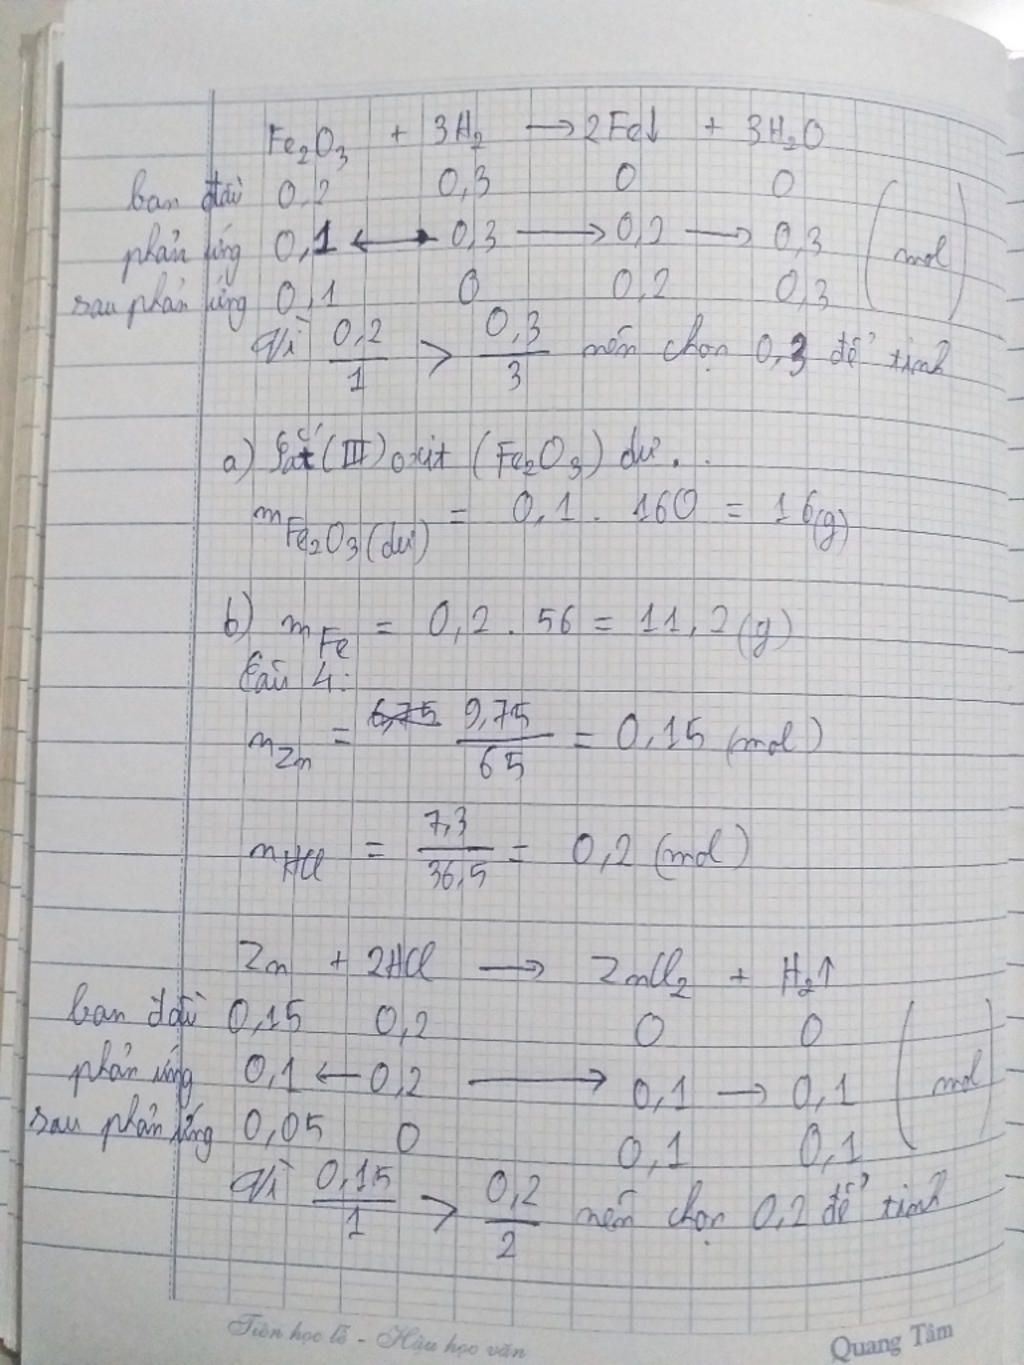 Fe₂O₃ + 3H₂ → 2Fe↓ + 3H₂O
ban đầu 0,2 0,3 0 0
phản ứng 0,1 ← 0,3 → 0,2 → 0,3 (mol)
sau phản ứng 0,1 0 0,2 0,3
Vì 0,2/1 > 0,3/3 nên chọn 0,3 để tính
a) Sắt (III) oxit (Fe₂O₃) dư.
m Fe₂O₃ (dư) = 0,1 . 160 = 16 (g)
b) m Fe = 0,2 . 56 = 11,2 (g)
Câu 4:
n Zn = 6,75 9,75/65 = 0,15 (mol)
n HCl = 7,3/36,5 = 0,2 (mol)
Zn + 2HCl → ZnCl₂ + H₂↑
ban đầu 0,15 0,2 0 0
phản ứng 0,1 ← 0,2 → 0,1 → 0,1 (mol)
sau phản ứng 0,05 0 0,1 0,1
Vì 0,15/1 > 0,2/2 nên chọn 0,2 để tính
Tiên học lễ - Hậu học văn Quang Tâm